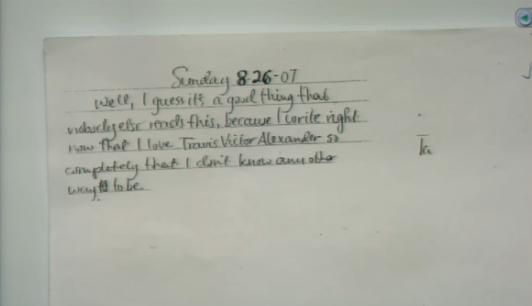 Sunday 8-26-07
Well, I guess it's a good thing that
nobody else reads this, because I write right
now that I love Travis Victor Alexander so
completely that I don't know any other
way to be.